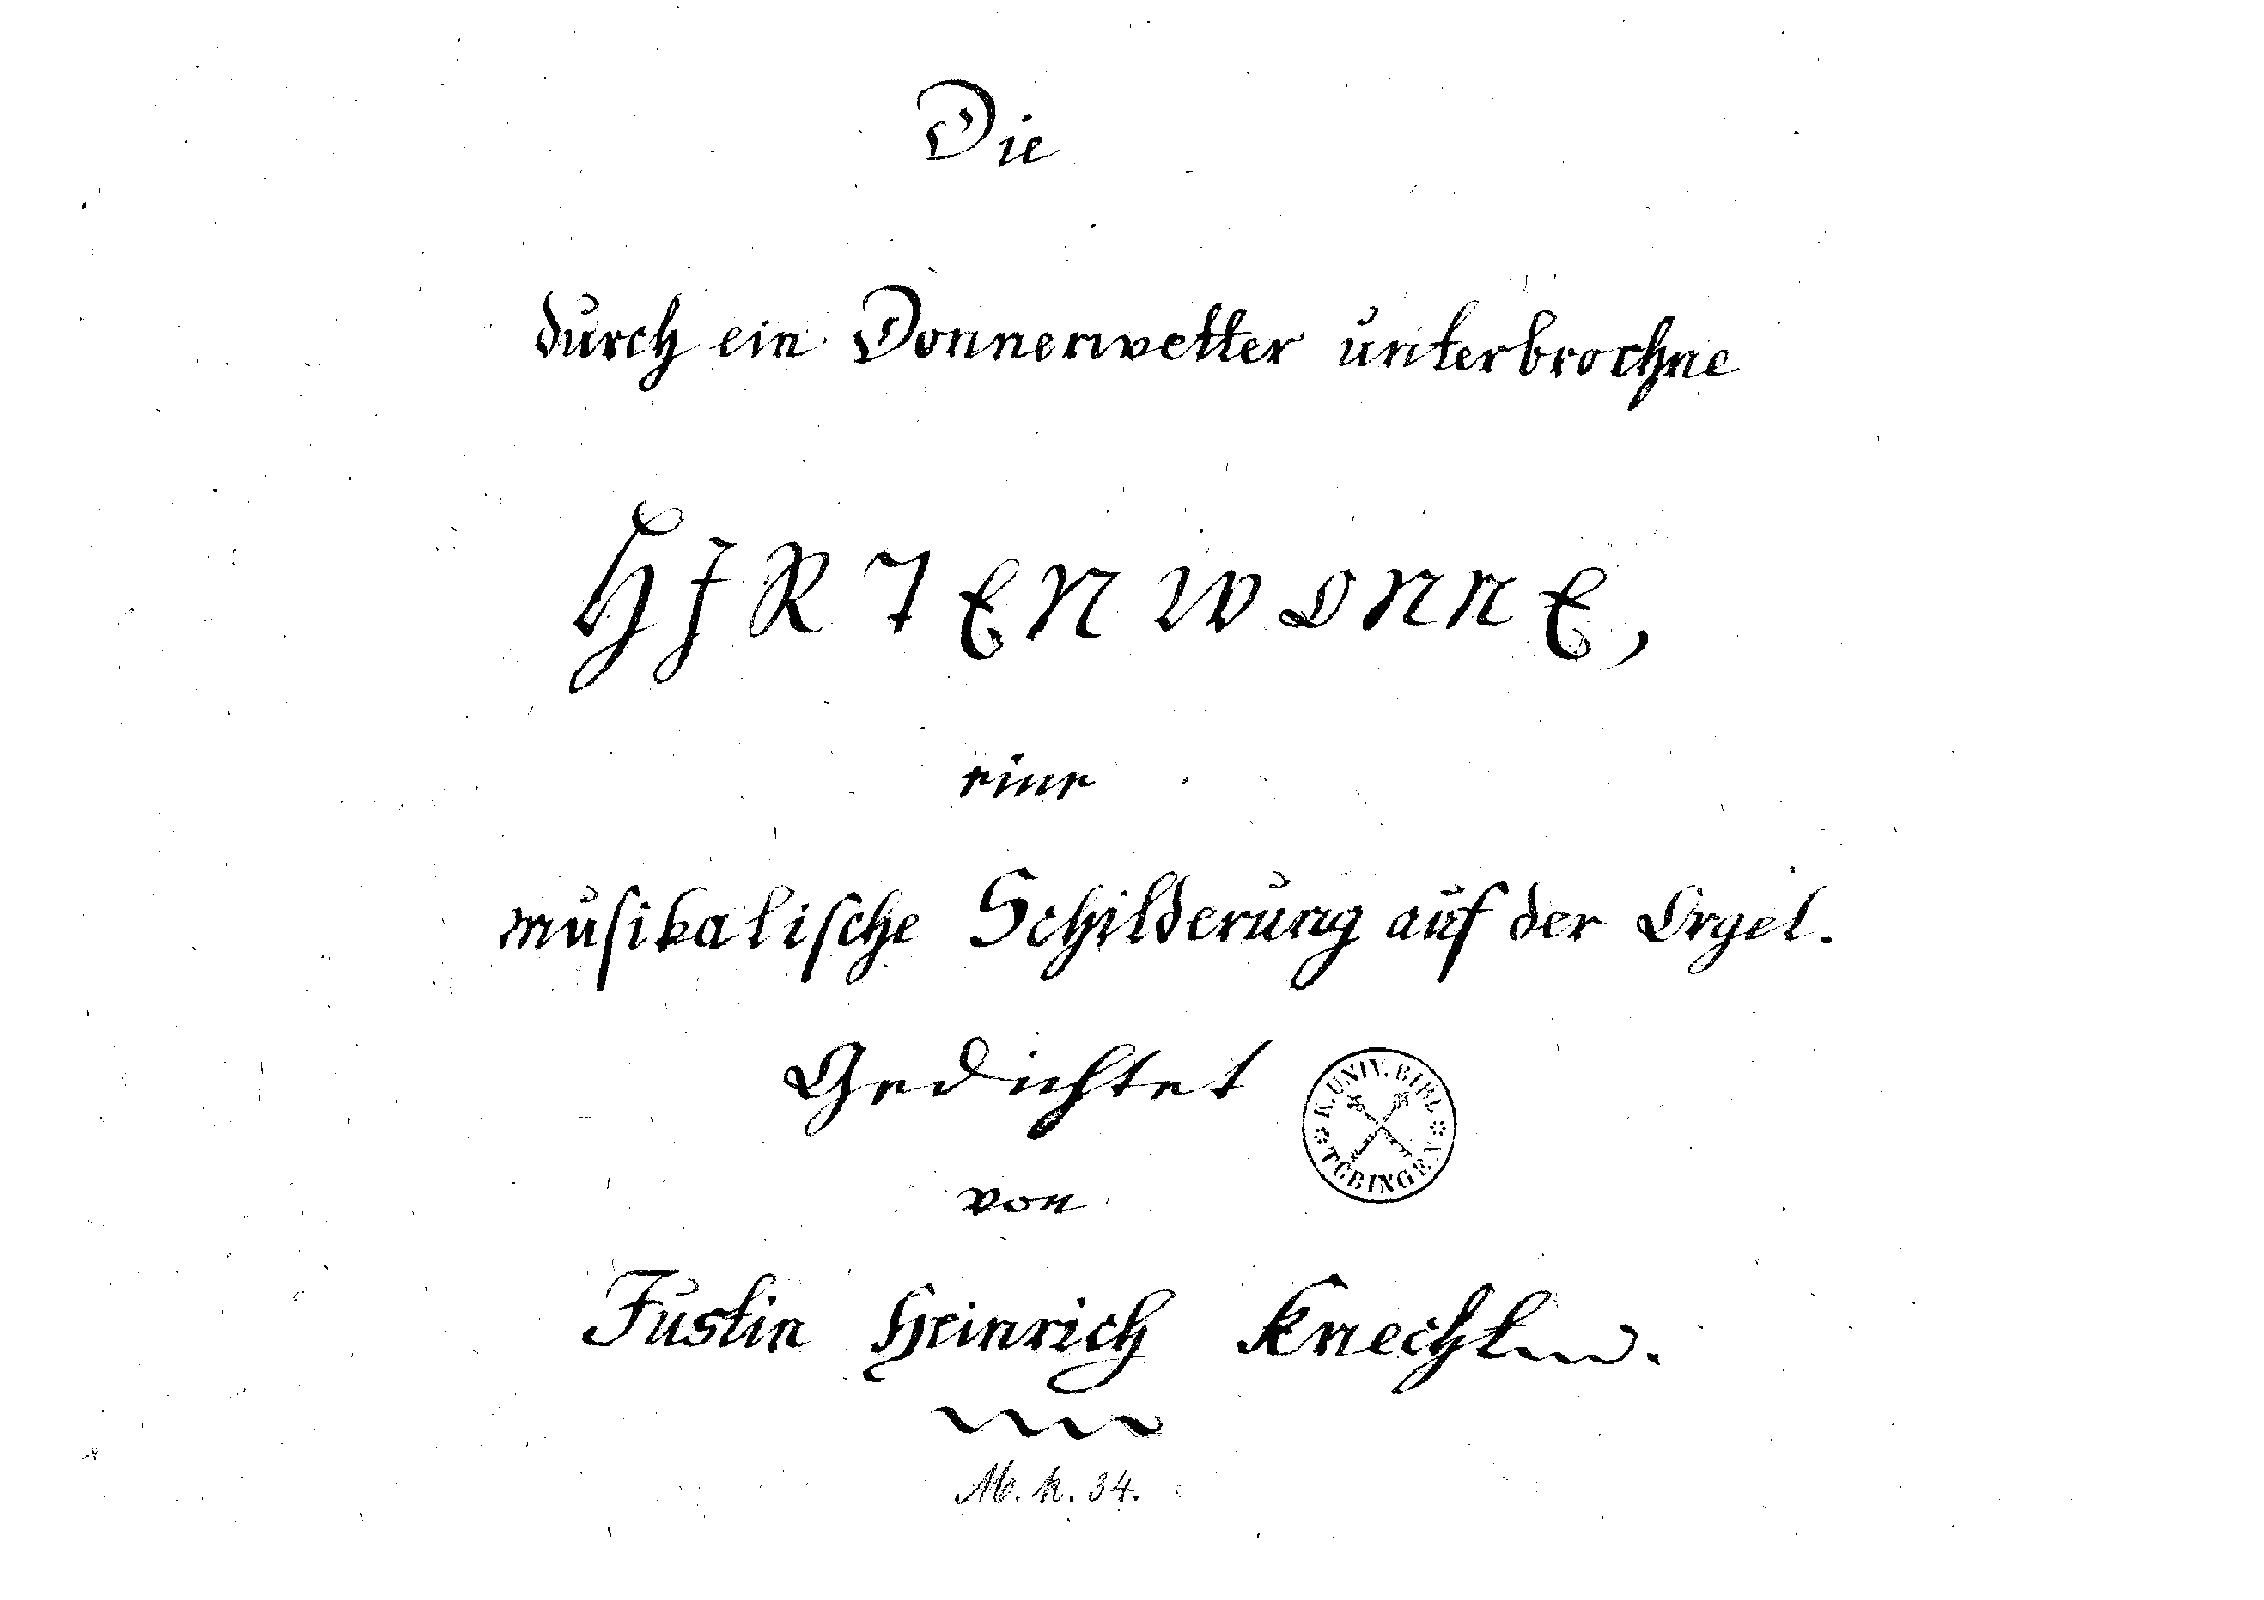 Die
durch ein Donnerwetter unterbrochne
HIRTENWONNE,
eine
musikalische Schilderung auf der Orgel.
Gedichtet
K. UNIV. BIBL.
TÜBINGEN
von
Justin Heinrich Knecht
34.